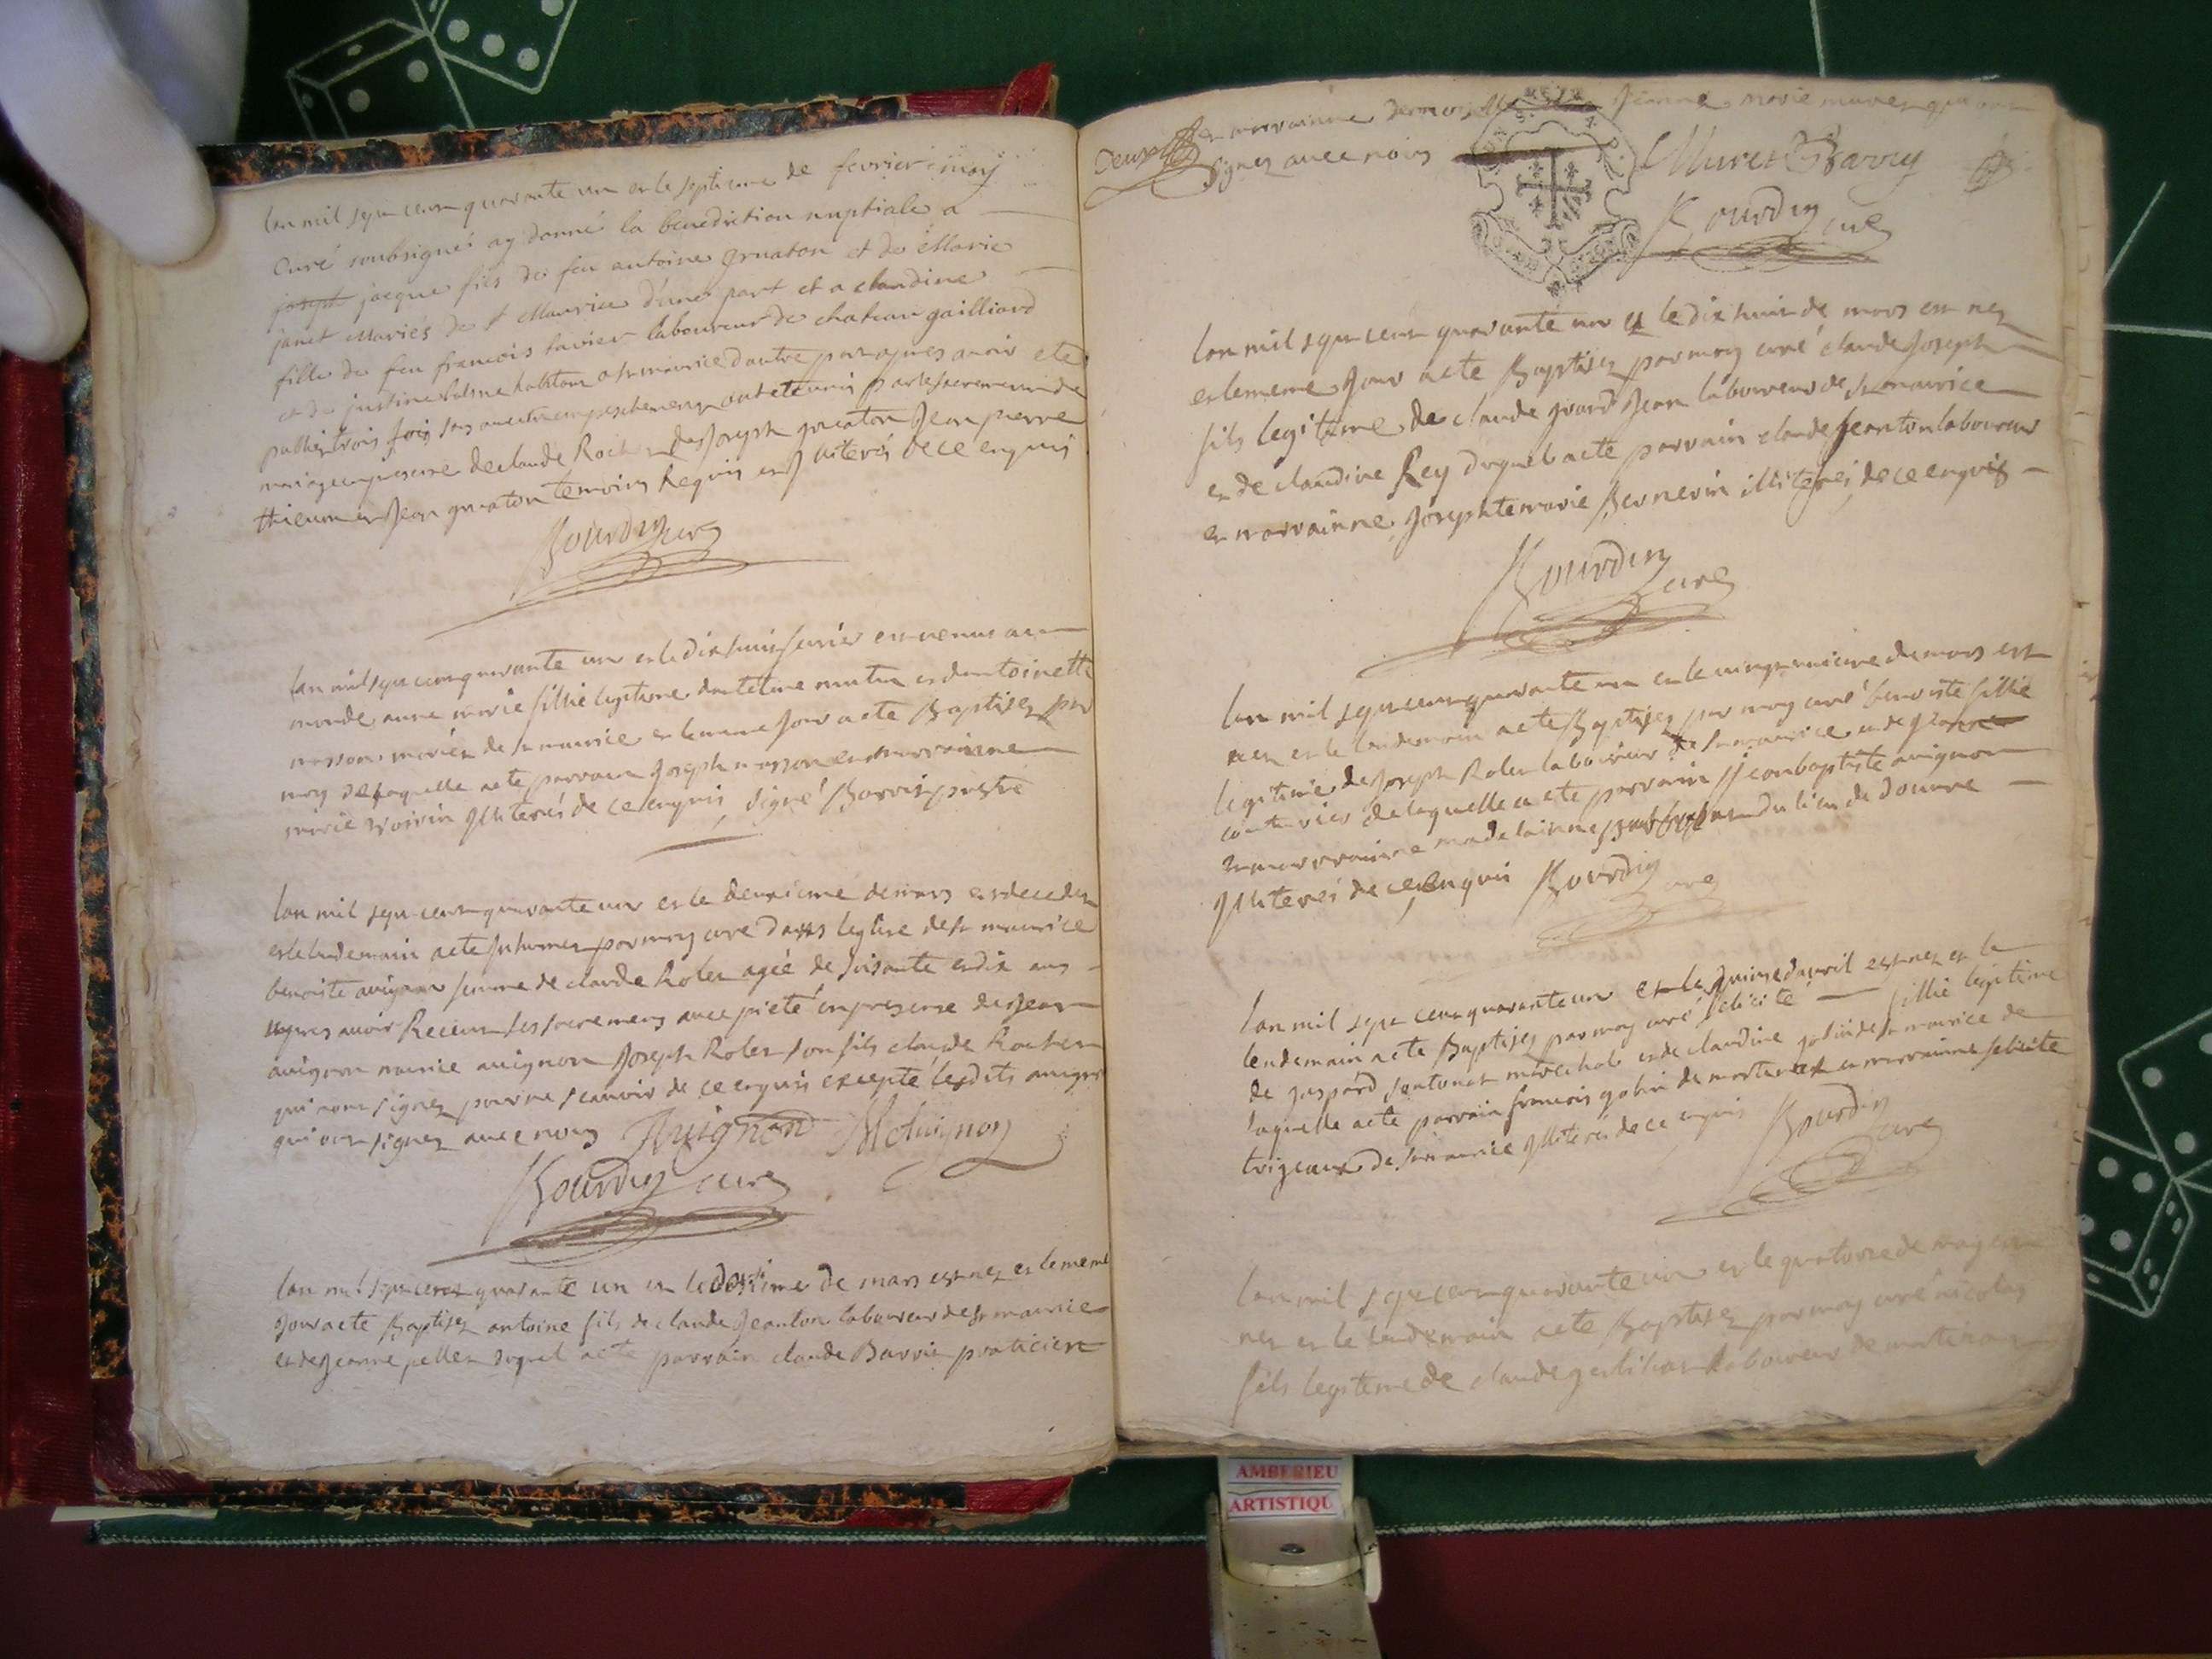 lan mil sept cent quarante un et le septieme de fevrier moy
curé soubsigné ay donné la benediction nuptiale a
joseph jacque fils de feu antoine gruaton et de Marie
janet Mariés de st Maurice d'une part et a claudine
fille de feu francois tavier laboureur de chateau gailliard
et de justine habitant a st maurice d'autre part apres avoir ete
publiez trois fois sans aucun empeschement ont ete unis par le sacrement de
mariage en presence de claude Rochet de Joseph gruaton Jean pierre
thievent et Jean gruaton temoins Requis et illiterés de ce enquis
Bourdin curé
lan mil sept cent quarante un et le dix huit fevrier est venue au
monde anne marie fillie legitime et dantoinette
masson mariez de st maurice et le meme jour a ete Baptisez par
moy de laquelle a ete parrain Joseph masson et marrainne
marie voisin illiterés de ce enquis signé Barvis
lan mil sept cent quarante un et le deuxieme de mars est decedez
et le lendemain a ete Inhumez par moy curé dans leglise de st maurice
benoiste avignon femme de claude Rolet agéé de soisante et dix ans
apres avoir Receut les sacremens avec pieté en presence de Jean
avignon maurice avignon Joseph Rolet son fils claude Rochet
qui nont signez pour ne scavoir de ce enquis excepté lesdits avignon
qui ont signez avec nous Avignon M Avignon
Bourdin curé
lan mil sept cent quarante un et le de mars est nez et le meme
jour a ete Baptisez antoine fils de claude Jeanton laboureur de st maurice
et de Jeanne pellet duquel a ete parrain claude Barvis praticien
Deux et marrainne demoiselle Jeanne marie muret qui ont
signez avec nous Muret Barvy
Bourdin curé
lan mil sept cent quarante un et le dix huit de mars est nez
et le meme Jour a ete Baptisez par moy curé claude Joseph
fils legitime de claude Jean laboureur de st maurice
et de claudine Rey duquel a ete parrain claude Jeanton laboureur
et marrainne Josephte marie Bernerin illiterés de ce enquis
Bourdin
curé
lan mil sept cent quarante un et le vingt unieme de mars est
nez et le lendemain a ete Baptisez par moy curé benoiste fillie
legitime de Joseph Rolet laboureur de st maurice et de
couturier de laquelle a ete parrain Jean baptiste avignon
et marrainne madelainne du lieu de douvre
illiterés de ce enquis Bourdin
curé
lan mil sept cent quarante un et le quinze davril est nez et le
lendemain a ete Baptisez par moy curé felicité fillie legitime
de gaspard marechal et de claudine gobin de st maurice de
laquelle a ete parrain francois gobin de et marrainne felicité
de st maurice illiterés de ce enquis Bourdin
curé
lan mil sept cent quarante un et le quatorze de may est
nez et le lendemain a ete Baptisez par moy curé nicolas
fils legitime de claude laboureur de
AMBERIEU
ARTISTIQU